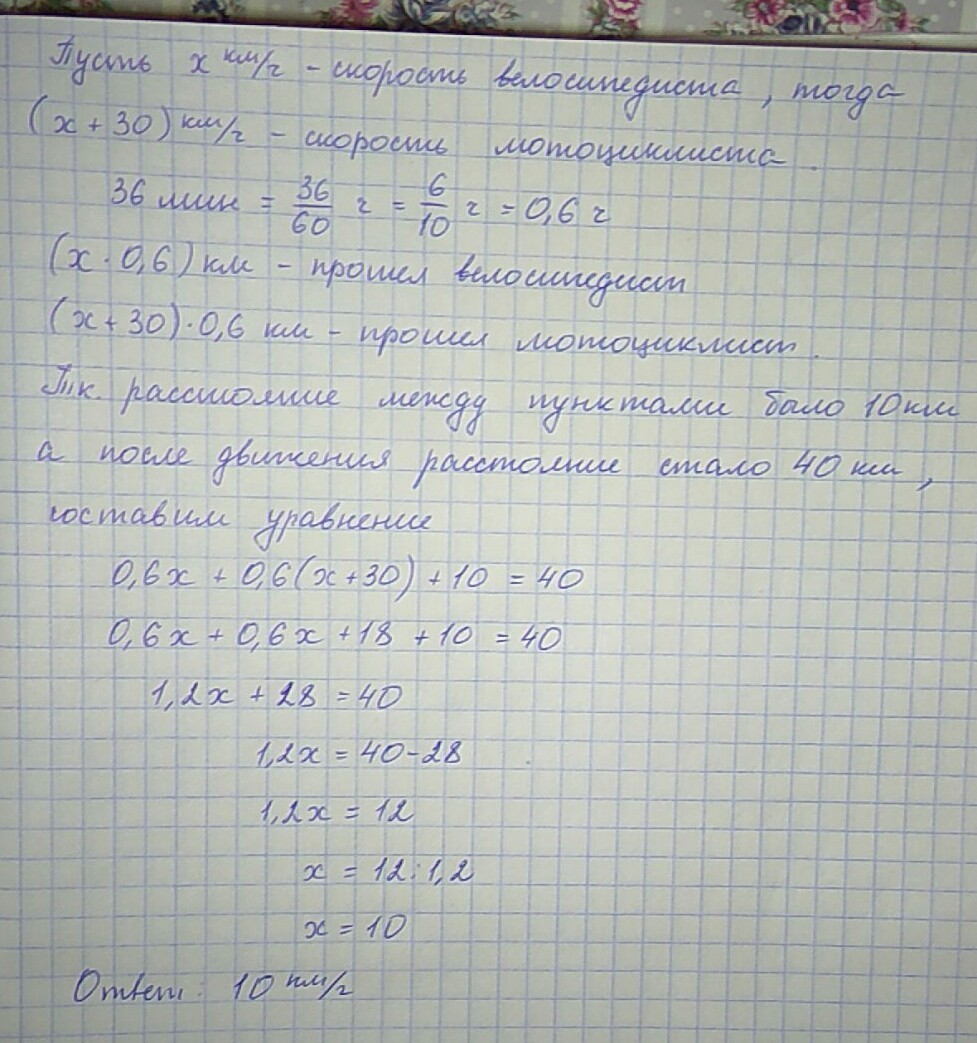 Пусть x км/ч - скорость велосипедиста, тогда
(x + 30) км/ч - скорость мотоциклиста.
36 мин = 36/60 ч = 6/10 ч = 0,6 ч
(x · 0,6) км - прошел велосипедист
(x + 30) · 0,6 км - прошел мотоциклист.
Т.к. расстояние между пунктами было 10 км
а после движения расстояние стало 40 км,
составим уравнение
0,6x + 0,6(x+30) + 10 = 40
0,6x + 0,6x + 18 + 10 = 40
1,2x + 28 = 40
1,2x = 40 - 28
1,2x = 12
x = 12 : 1,2
x = 10
Ответ: 10 км/ч